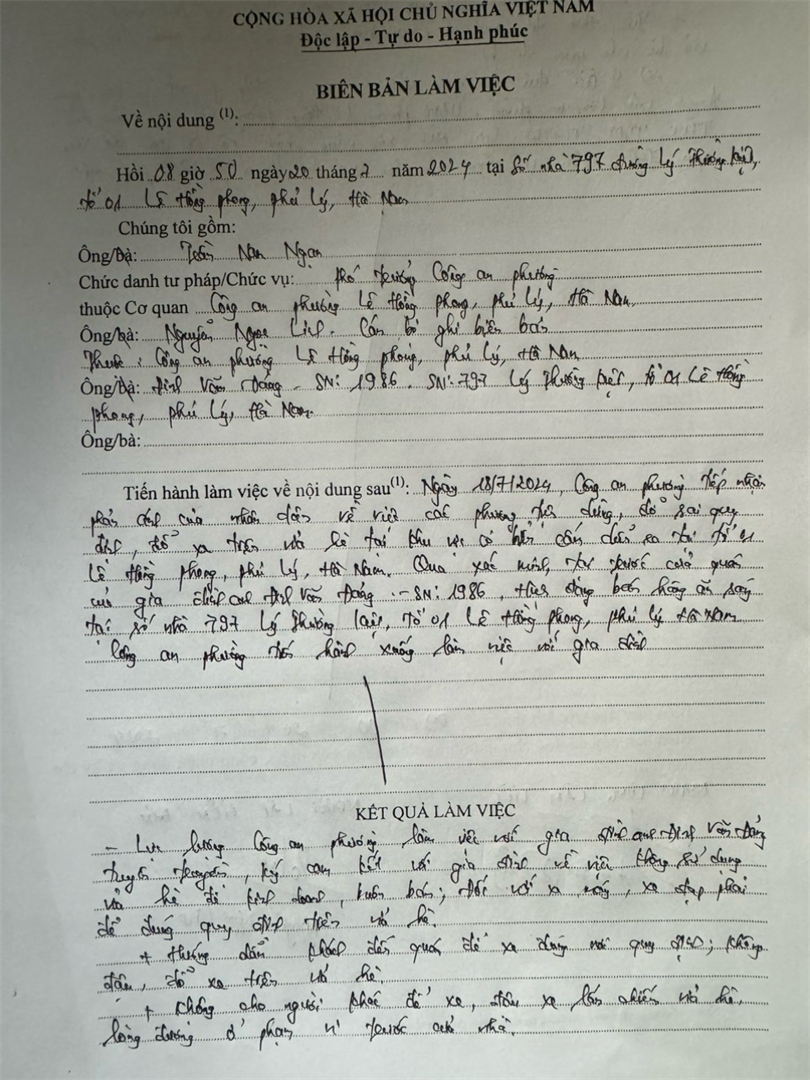 CỘNG HÒA XÃ HỘI CHỦ NGHĨA VIỆT NAM
Độc lập - Tự do - Hạnh phúc
BIÊN BẢN LÀM VIỆC
Về nội dung (1):
Hồi 08 giờ 50 ngày 20 tháng 7 năm 2024 tại Số nhà 797 đường Lý Thường Kiệt,
tổ 01 Lê Hồng Phong, Phủ Lý, Hà Nam
Chúng tôi gồm:
Ông/bà: Trần Nam
Chức danh tư pháp/Chức vụ: Phó trưởng Công an phường
thuộc Cơ quan Công an phường Lê Hồng Phong, Phủ Lý, Hà Nam.
Ông/bà: Nguyễn Ngọc Linh. Cán bộ ghi biên bản
Thuộc: Công an phường Lê Hồng Phong, Phủ Lý, Hà Nam
Ông/bà: Đinh Văn - SN: 1986. SN: 797 Lý Thường Kiệt, tổ 01 Lê Hồng
Phong, Phủ Lý, Hà Nam.
Ông/bà:
Tiến hành làm việc về nội dung sau(1): Ngày 18/7/2024, Công an phường tiếp nhận
phản ánh của nhân dân về việc các phương tiện dừng, đỗ sai quy
định, đỗ xe trên vỉa hè tại khu vực có biển cấm tại tổ 01
Lê Hồng Phong, Phủ Lý, Hà Nam. Qua xác minh, tại trước cửa quán
của gia đình anh Đinh Văn - SN: 1986, bán hàng ăn sáng
tại số nhà 797 Lý Thường Kiệt, tổ 01 Lê Hồng Phong, Phủ Lý Hà Nam
Công an phường tiến hành xuống làm việc với gia đình
KẾT QUẢ LÀM VIỆC
- Lực lượng Công an phường làm việc với gia đình anh Đinh Văn
tuyên truyền, ký cam kết với gia đình về việc không sử dụng
vỉa hè để kinh doanh, buôn bán; Đối với xe máy, xe đạp phải
để đúng quy định trên vỉa hè.
+ Hướng dẫn khách đến quán để xe đúng nơi quy định; không
dừng, đỗ xe trên vỉa hè
+ Không cho người khác để xe, đậu xe lấn chiếm vỉa hè,
lòng đường ở phạm vi trước cửa nhà.